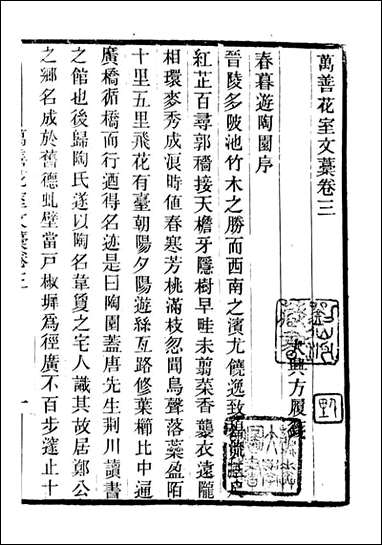 萬善花室文藁卷三
大興方履籛
春暮遊陶園序
晉陵多陂池竹木之勝而西南之濱尤饒逸致
紅芷百尋郭穡接天檐牙隱樹早畦未翦菜香襲衣遠隴
相環麥秀成浪時値春寒芳桃滿枝忽聞鳥聲落蘂盈陌
十里五里飛花有臺朝陽夕陽遊絲亙路修葉櫛比中通
廣橋循橋而行迺得名迹是曰陶園蓋唐先生荆川讀書
之館也後歸陶氏遂以陶名葦敻之宅人識其故居鄭公
之鄉名成於舊德虬壁當戸椒墀爲徑廣不百步籧止十
萬善花室文藁卷三
一